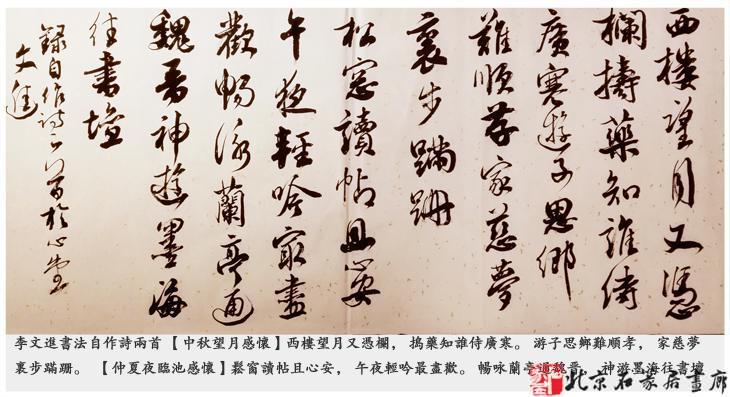 西樓望月又憑
欄擣藥知誰侍
廣寒遊子思鄉
難順孝家慈夢
裏步蹣跚
松窓讀帖且心安
午夜輕吟最盡
歡暢詠蘭亭通
魏晋神遊墨海
往書壇
録自作詩二首於心堂
文進
李文進書法自作詩兩首 【中秋望月感懷】西樓望月又憑欄, 搗藥知誰侍廣寒。 游子思鄉難順孝, 家慈夢
裏步蹣跚。 【仲夏夜臨池感懷】鬆窗讀帖且心安, 午夜輕吟最盡歡。 暢咏蘭亭通魏晋, 神游墨海往書壇
北京石居畫廊